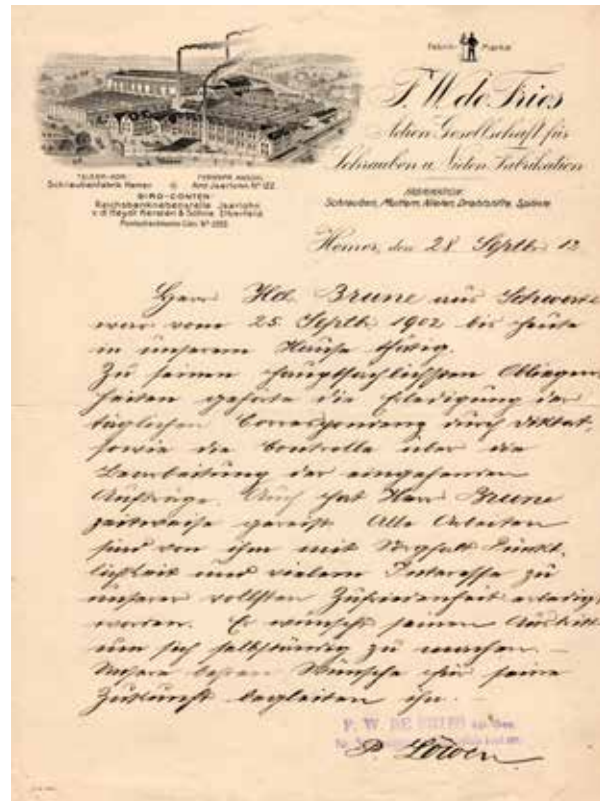 Fabrik- Marke
F. W. de Fries
Actien Gesellschaft für
Schrauben u. Nieten Fabrikation
TELEGR.-ADR.:
Schraubenfabrik Hemer.
FERNSPR. ANSCHL.
Amt Iserlohn Nº 122.
GIRO-CONTEN:
Reichsbanknebenstelle Iserlohn
v. d. Heydt Kersten & Söhne Elberfeld
FABRIKATION:
Schrauben, Muttern, Nieten, Drahtstifte, Splinte
Hemer, den 28. Septbr. 12
Herr Hch. Brune aus Schwerte
war vom 25. Septbr. 1902 bis heute
in unserem Hause thätig.
Zu seinen hauptsächlichsten Obliegen
heiten gehörte die Erledigung der
täglichen Correspondenz durch Diktat,
sowie die Controlle über die
Bearbeitung der eingehenden
Aufträge. Auch hat Herr Brune
zeitweise gereist. Alle Arbeiten
sind von ihm mit Sorgfalt Pünkt,
lichkeit und vielem Interesse zu
unserer vollsten Zufriedenheit erledigt
worden. Er wünscht seinen Austritt
um sich selbständig zu machen. –
Unsere besten Wünsche für seine
Zukunft begleiten ihn. –
F. W. DE FRIES
P. Löwen